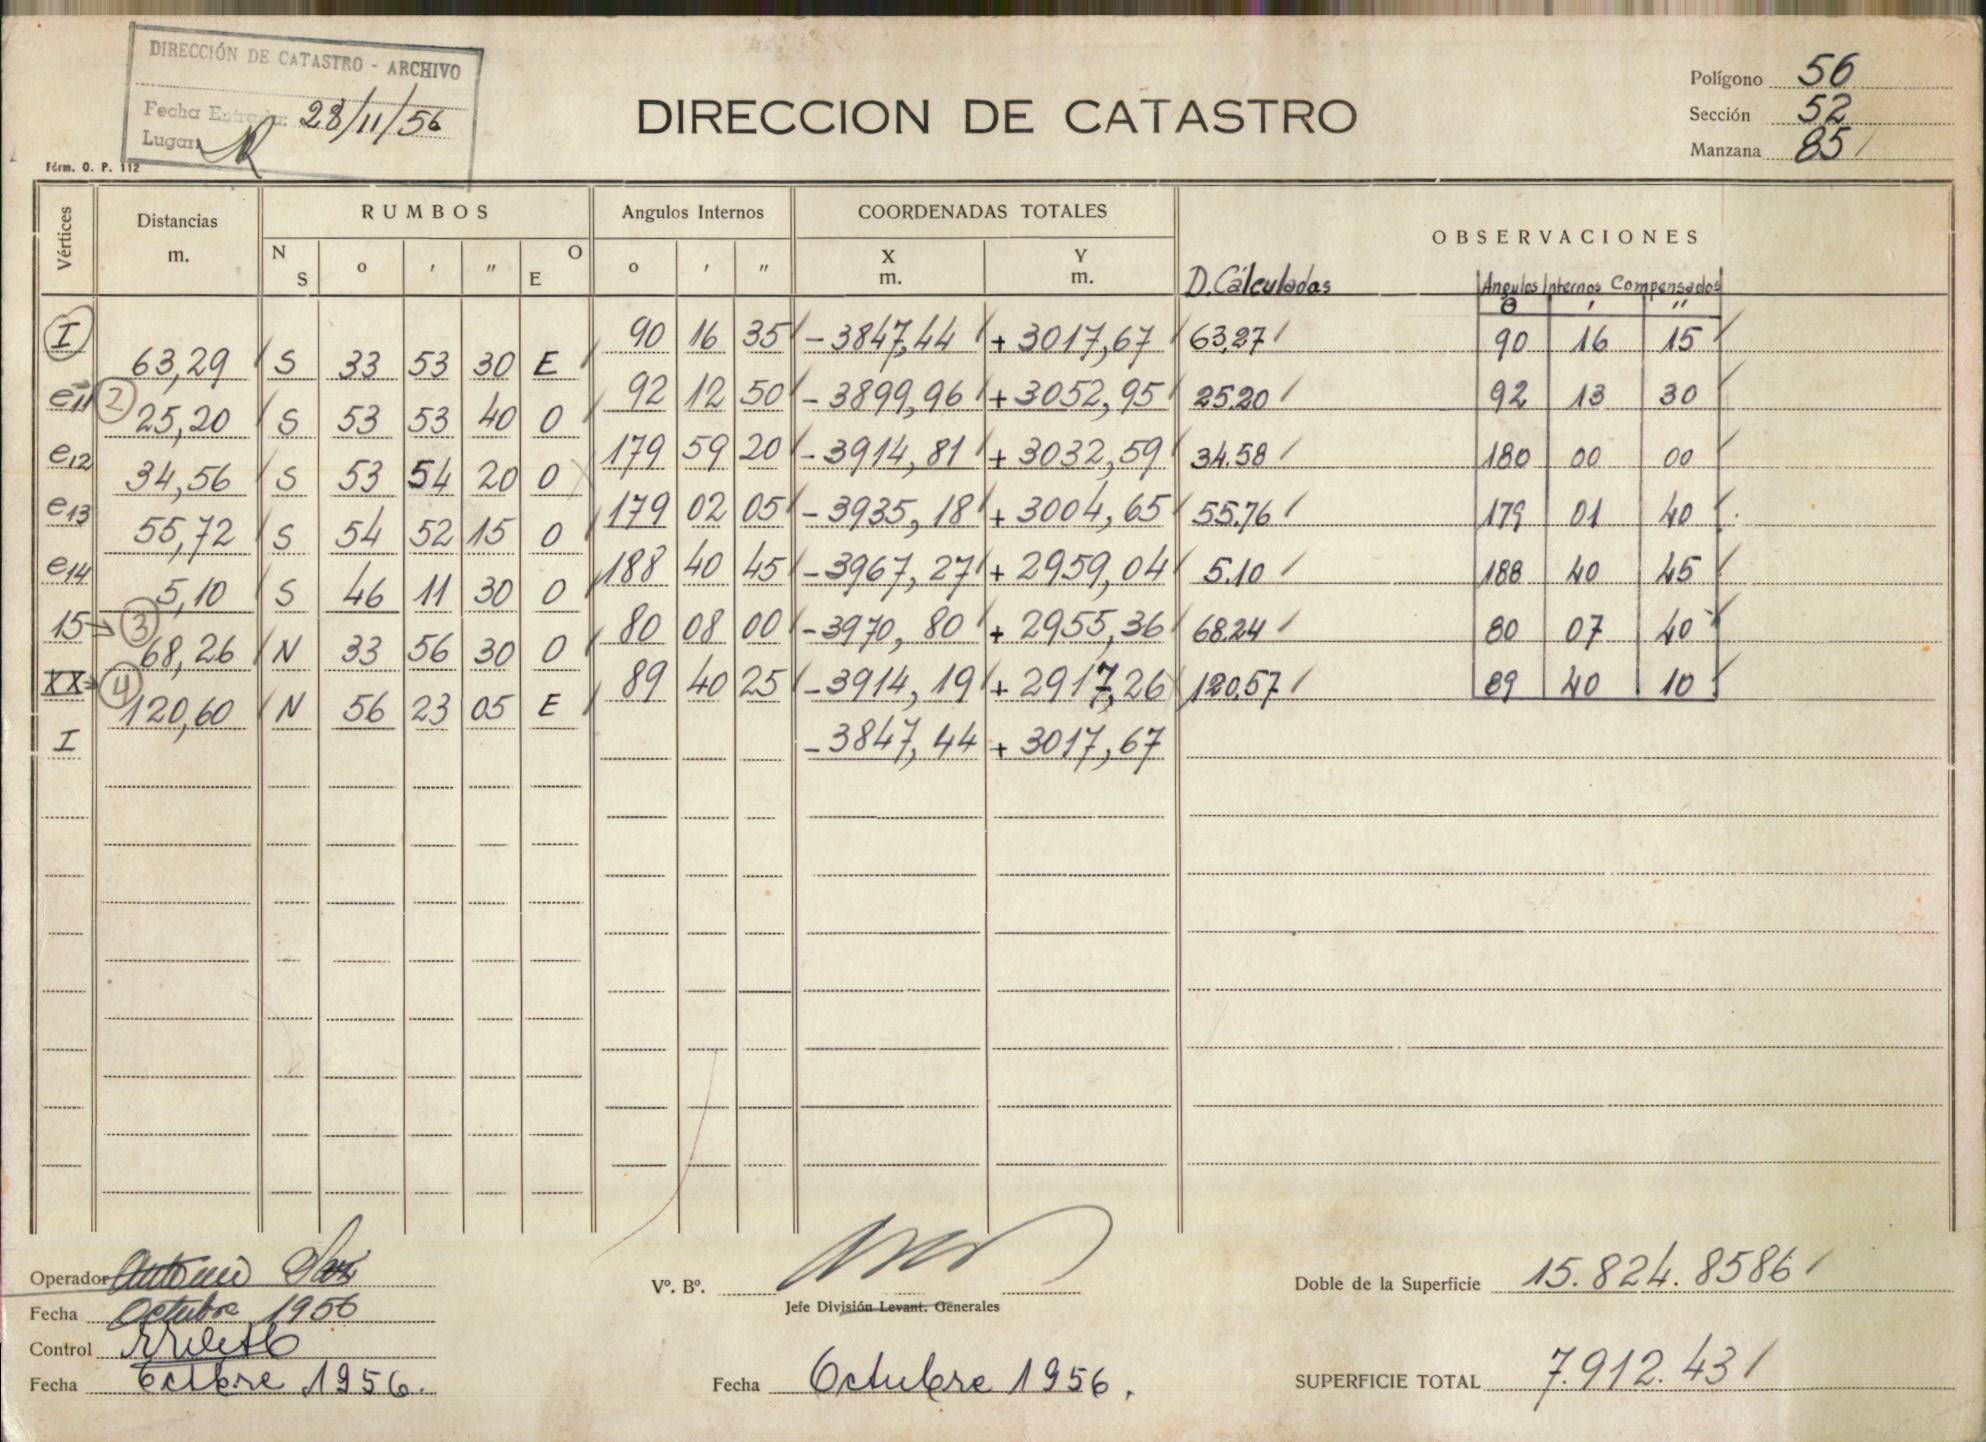 DIRECCIÓN DE CATASTRO - ARCHIVO
Fecha Entrada: 28/11/56
Lugar:
Fórm. O. P. 112
DIRECCION DE CATASTRO
Polígono 56
Sección 52
Manzana 85
Vértices Distancias m. RUMBOS Angulos Internos COORDENADAS TOTALES OBSERVACIONES
N S o ' " O E o ' " X m. Y m. D. Cálculadas Angulos Internos Compensados
o ' "
I 90 16 35 - 3847,44 + 3017,67 63,27 90 16 15
63,29 S 33 53 30 E
e11 2 92 12 50 - 3899,96 + 3052,95 25.20 92 13 30
25,20 S 53 53 40 O
e12 179 59 20 - 3914,81 + 3032,59 34.58 180 00 00
34,56 S 53 54 20 O
e13 179 02 05 - 3935,18 + 3004,65 55.76 179 01 40
55,72 S 54 52 15 O
e14 188 40 45 - 3967,27 + 2959,04 5.10 188 40 45
5,10 S 46 11 30 O
15 3 80 08 00 - 3970,80 + 2955,36 68.24 80 07 40
68,26 N 33 56 30 O
XX 4 89 40 25 - 3914,19 + 2917,26 120.57 89 40 10
120,60 N 56 23 05 E
I - 3847,44 + 3017,67
Operador Antonio
Fecha Octubre 1956
Control
Fecha Octbre 1956.
Vº. Bº.
Jefe División Levant. Generales
Fecha Octubre 1956.
Doble de la Superficie 15.824.8586
SUPERFICIE TOTAL 7.912.43